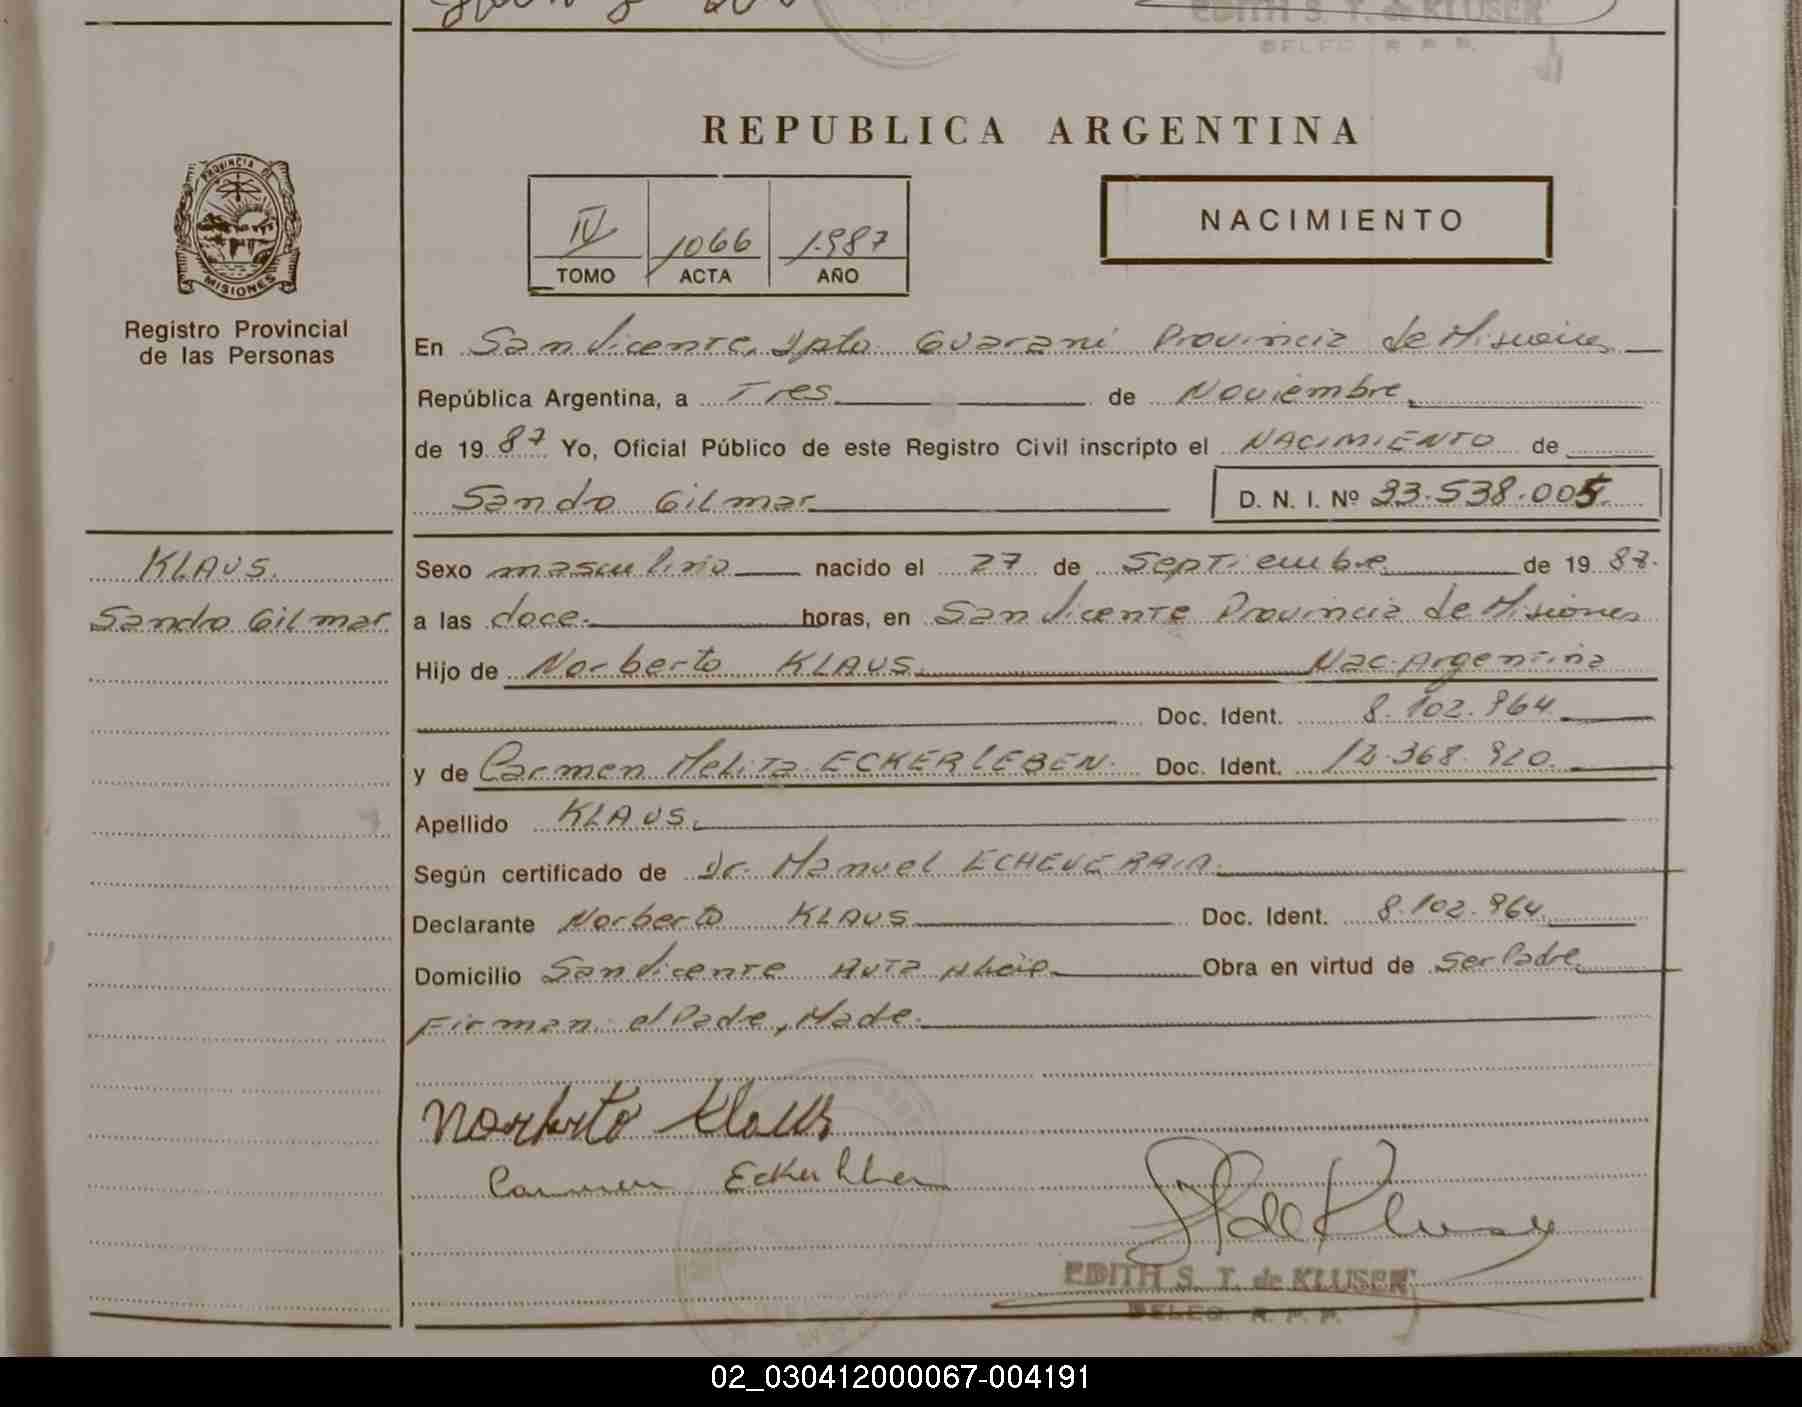 EDITH S. T. de KLUSER
DELEG. R. P. P.
PROVINCIA DE
MISIONES
Registro Provincial
de las Personas
REPUBLICA ARGENTINA
IV 1066 1.987
TOMO ACTA AÑO
NACIMIENTO
En San Vicente, Dpto Guaraní Provincia de Misiones
República Argentina, a Tres de Noviembre,
de 19 87 Yo, Oficial Público de este Registro Civil inscripto el NACIMIENTO de
Sandro Gilmar D. N. I. Nº 33.538.005
KLAUS.
Sandro Gilmar
Sexo masculino nacido el 27 de Septiembre de 19 87.
a las doce. horas, en San Vicente Provincia de Misiones
Hijo de Norberto KLAUS. Nac. Argentina
Doc. Ident. 8.102.964
y de Carmen Melita ECKERLEBEN. Doc. Ident. 12.368.920.
Apellido KLAUS.
Según certificado de Dr. Manuel
Declarante Norberto KLAUS Doc. Ident. 8.102.964
Domicilio San Vicente Obra en virtud de ser Padre
Firman: el Padre, Madre.
Norberto Klaus
Carmen
de Kluser
EDITH S. T. de KLUSER
DELEG. R. P. P.
02_030412000067-004191